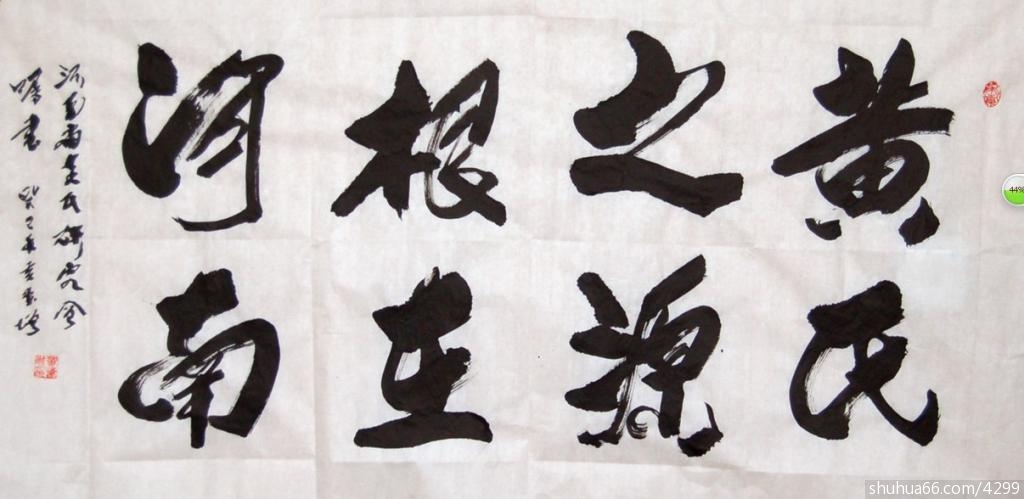 黄氏
之源
根在
河南
河南省黄氏研究会
嘱书 癸巳年
shuhua66.com/4299